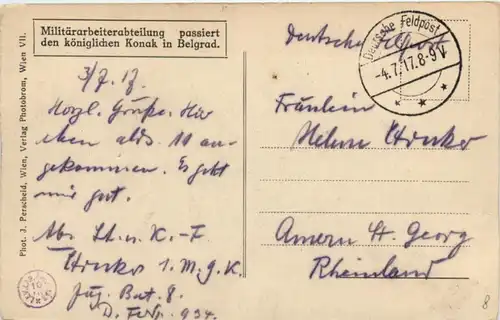 Militärarbeiterabteilung passiert
den königlichen Konak in Belgrad.
Phot. J. Perscheid, Wien, Verlag Photobrom, Wien VII.
3/7. 17.
Herzl. Grüße. Hier
eben an-
gekommen. Es geht
mir gut.
Abs. Lt. u. K.-F.
1. M. G. K.
Jäg. Bat. 8.
D. F. 934.
Deutsche Feldpost
Deutsche Feldpost
-4.7.17.8-9V
Fräulein
Helene
Amern St. Georg
Rheinland
8